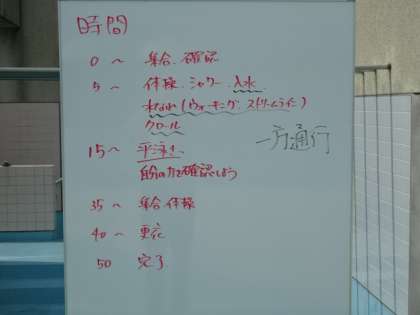 時間
0 〜 集合、確認
5 〜 体操、シャワー、入水
水なれ(ウォーキング、ストリームライン)
クロール
一方通行
15〜 平泳ぎ、
自分の力を確認しよう
35 〜 集合 体操
40 〜 更衣
50 完了